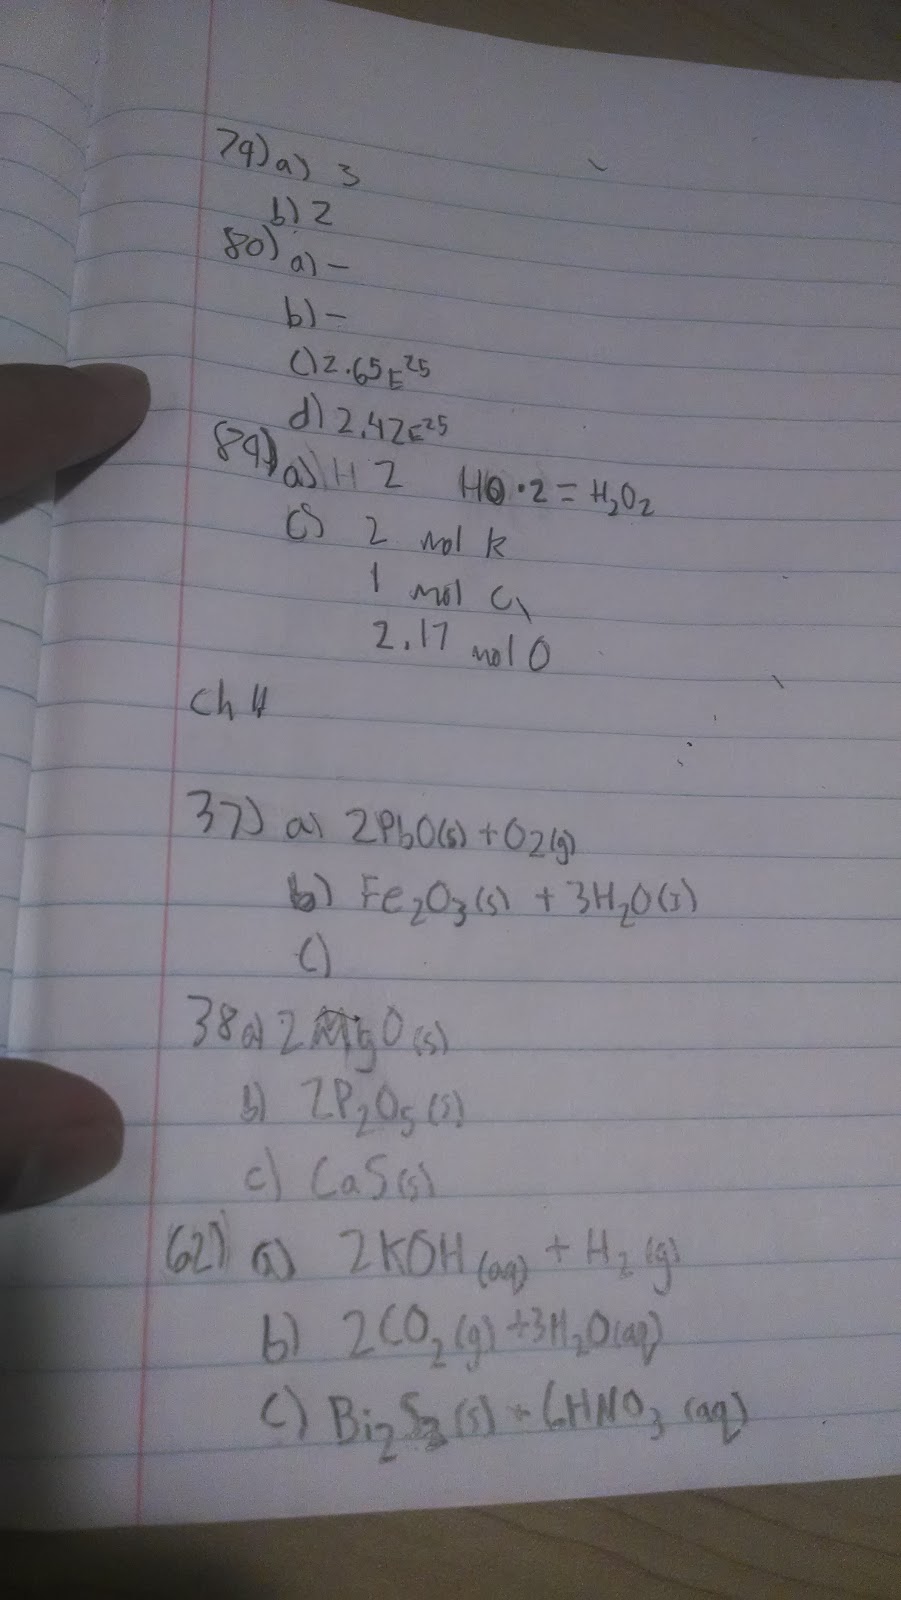 79) a) 3
b) 2
80) a) –
b) –
c) 2.65E²⁵
d) 2.42E²⁵
89) a) H 2 HO · 2 = H₂O₂
c) 2 mol k
1 mol C
2.17 mol O
Ch 4
37) a) 2PbO(s) + O₂(g)
b) Fe₂O₃(s) + 3H₂O(l)
c)
38 a) 2MgO(s)
b) 2P₂O₅(s)
c) CaS(s)
62) a) 2KOH(aq) + H₂(g)
b) 2CO₂(g) + 3H₂O(aq)
c) Bi₂S₃(s) + 6HNO₃(aq)